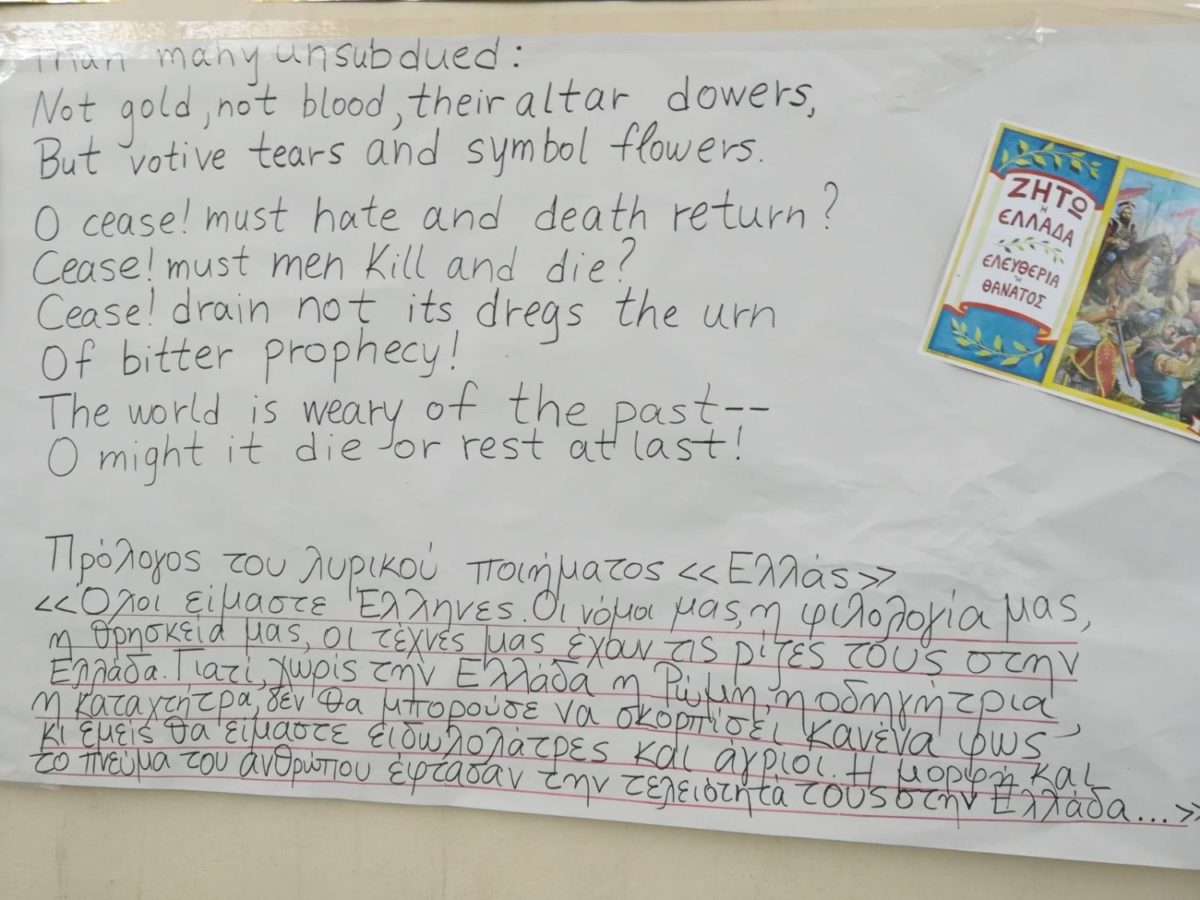 Than many unsubdued:
Not gold, not blood, their altar dowers,
But votive tears and symbol flowers.
O cease! must hate and death return?
Cease! must men kill and die?
Cease! drain not its dregs the urn
Of bitter prophecy!
The world is weary of the past--
O might it die or rest at last!
ΖΗΤΩ
Η
ΕΛΛΑΔΑ
ΕΛΕΥΘΕΡΙΑ
Ή
ΘΑΝΑΤΟΣ
Πρόλογος του λυρικού ποιήματος <<Ελλάς>>
<<Όλοι είμαστε Έλληνες. Οι νόμοι μας, η φιλολογία μας,
η θρησκεία μας, οι τέχνες μας έχαν τις ρίζες τους στην
Ελλάδα. Γιατί, χωρίς την Ελλάδα η Ρώμη, η οδηγήτρια,
η καταχτήτρα, δεν θα μπορούσε να σκορπίσει κανένα φως,
κι εμείς θα είμαστε ειδωλολάτρες και άγριοι. Η μορφή και
το πνεύμα του ανθρώπου έφτασαν την τελειότητά τους στην Ελλάδα...>>